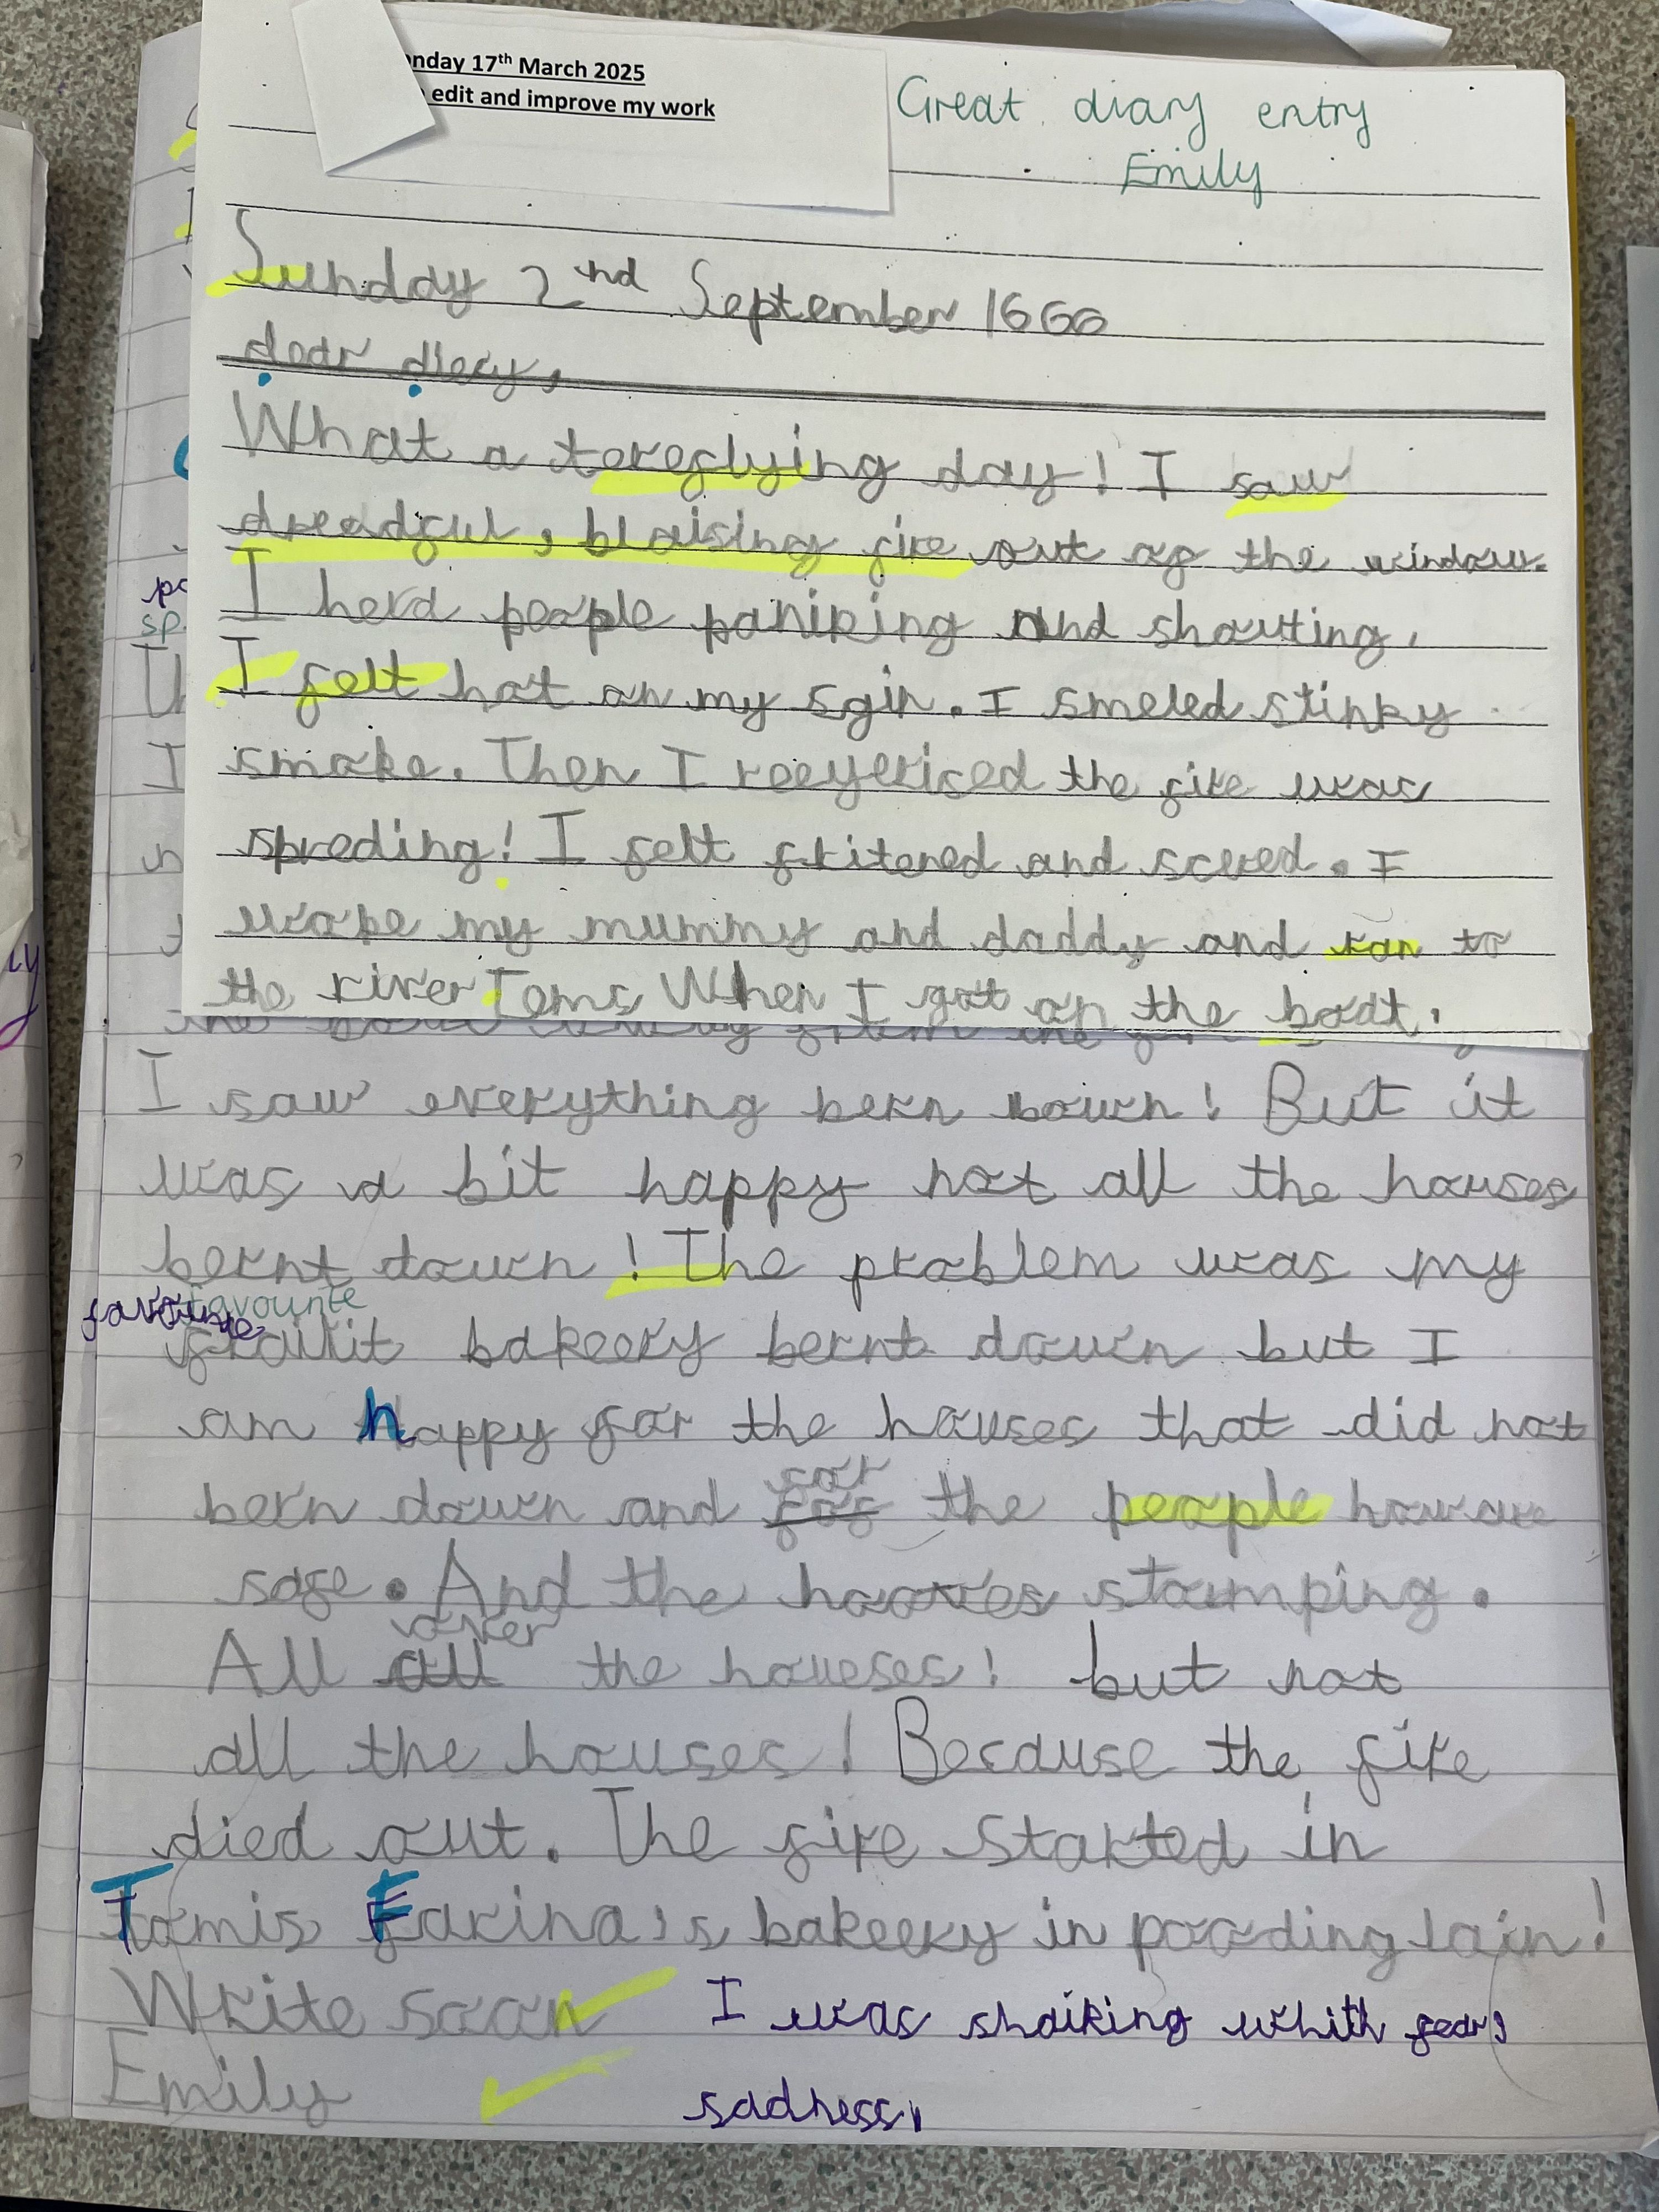 onday 17th March 2025
edit and improve my work
Great diary entry
Emily
Sunday 2nd September 1666
dear diery,
What a tereflying day! I saw
dreadful, blaising fire out of the window.
I herd people paniking and shouting.
I felt hot on my sgin. I smeled stinky
smoke. Then I reeyerised the fire was
spreding! I felt fritened and scred. I
woke my mummy and daddy and ran to
the river Tems When I got on the boat.
I saw everything bern down! But it
was a bit happy not all the houses
bernt down! The problem was my
favourite
favourite
bakeery bernt down but I
am happy for the houses that did not
for
bern down and fof the people how are
safe. And the hooves stamping.
over
All all the houeses! but not
all the houses! Because the fire
died out. The fire started in
Tomis Farina's bakeery in pooding lain!
Write soon
I was shaiking whith fear,
Emily
sadness,
po
sp.
Th
I